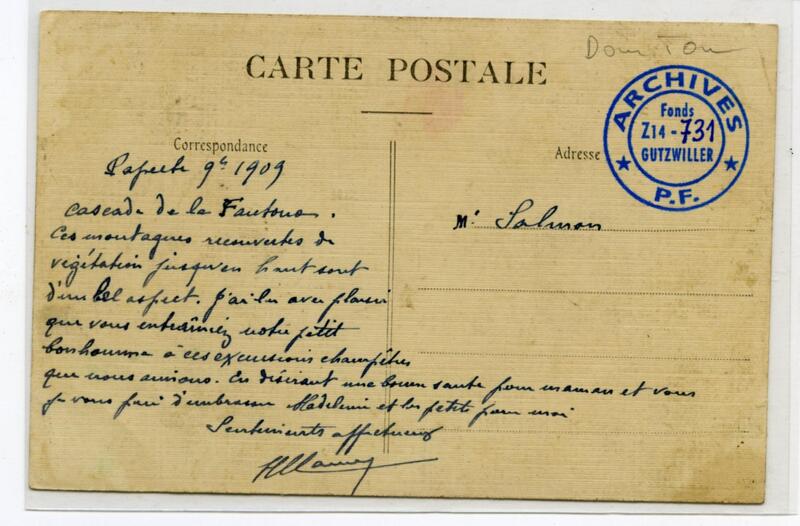 Dom Tom
CARTE POSTALE
ARCHIVES
Fonds
Z14-731
GUTZWILLER
P.F.
Correspondance
Adresse
Papeete 9bre 1909
Mr Salmon
Cascade de la Fautaua.
Ces montagnes recouvertes de
végétation jusqu'en haut sont
d'un bel aspect. J'ai lu avec plaisir
que vous entraîniez notre petit
bonhomme à ces excursions champêtres
que nous aimons. En désirant une bonne santé pour maman et vous
je vous prie d'embrasser Madeleine et les petits pour moi
Sentiments affectueux